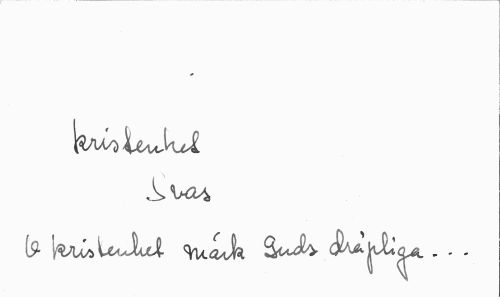 kristenhet
Svas
O kristenhet märk Guds dräpliga...